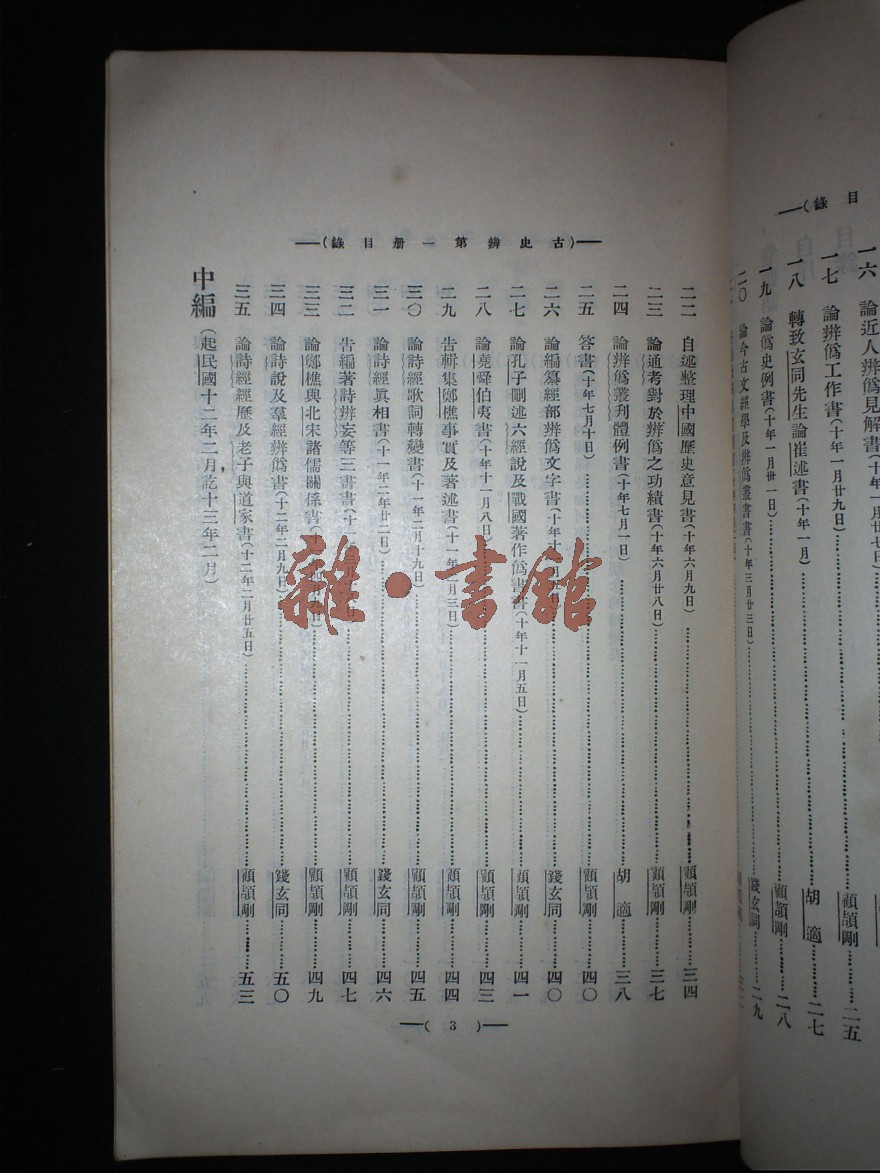 目錄)
一六 論近人辨僞見解書(十年一月廿七日)
一七 論辨僞工作書(十年一月廿九日)……顧頡剛……二五
一八 轉致玄同先生論崔述書(十年一月)……胡適……二七
一九 論僞史例書(十年一月卅一日)……顧頡剛……二八
二〇 論今古文經學及辨僞叢書書(十年三月廿三日)……錢玄同……二九
(古史辨第一册目錄)
二二 自述整理中國歷史意見書(十年六月九日)……顧頡剛……三四
二三 論通考對於辨僞之功績書(十年六月廿八日)……顧頡剛……三七
二四 論辨僞叢刊體例書(十年七月一日)……胡適……三八
二五 答書(十年七月十日)……顧頡剛……四〇
二六 論編纂經部辨僞文字書(十年十……錢玄同……四〇
二七 論孔子刪述六經說及戰國著作僞書書(十年十一月五日)……顧頡剛……四一
二八 論堯舜伯夷書(十年十一月八日)……錢玄同……四三
二九 告輯集鄭樵事實及著述書(十一年 月三日)……顧頡剛……四四
三〇 論詩經歌詞轉變書(十一年二月十九日)……顧頡剛……四五
三一 論詩經眞相書(十一年二月廿二日)……錢玄同……四六
三二 告編著詩辨妄等三書書(十一……顧頡剛……四七
三三 論鄭樵與北宋諸儒關係書(十……顧頡剛……四九
三四 論詩說及羣經辨僞書(十二年二月九日)……錢玄同……五〇
三五 論詩經經歷及老子與道家書(十二年二月廿五日)……顧頡剛……五三
中編(起民國十二年二月,訖十三年二月)
( 3 )
雜·書館